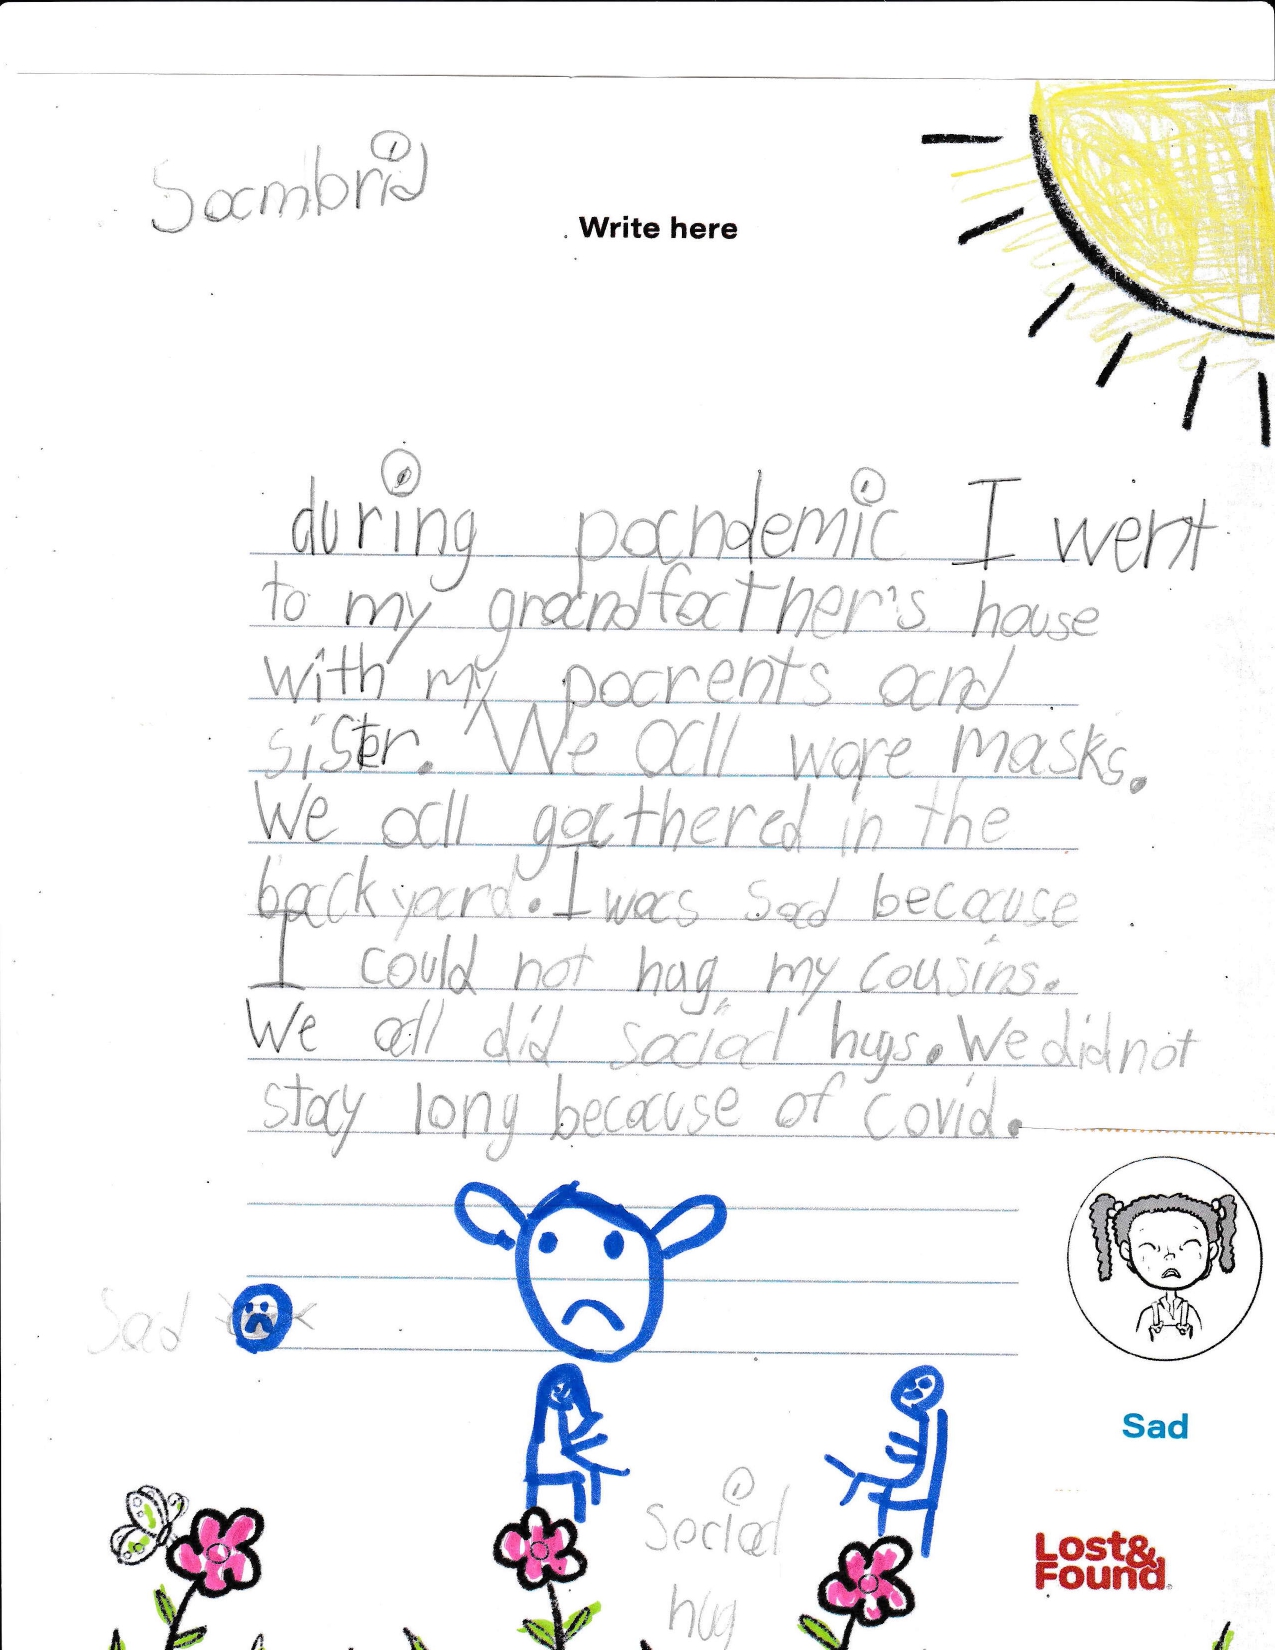 Sambrid
Write here
during pandemic I went
to my grandfather's house
with my parents and
sister. We all wore masks.
We all gathered in the
backyard. I was sad because
I could not hug my cousins.
We all did social hugs. We did not
stay long because of covid.
Sad
Sad
Social
hug
Lost&
Found